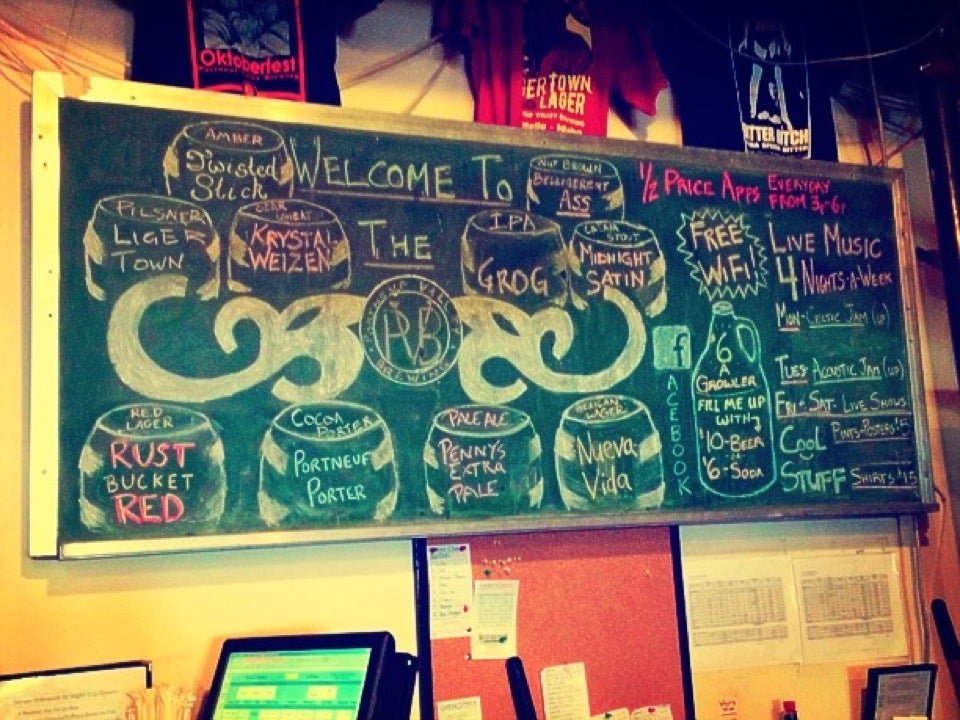 Oktoberfest
LAGER
AMBER
Twisted
Stick
WELCOME TO
THE
NUT BROWN
BELLIGERENT
ASS
1/2 PRICE APPS EVERYDAY
FROM 3P-6P
PILSNER
LIGER
TOWN
KRYSTAL
WEIZEN
IPA
GROG
STOUT
MIDNIGHT
SATIN
FREE
WiFi!
LIVE MUSIC
4 NIGHTS-A-WEEK
MON-CELTIC JAM
TUES ACOUSTIC JAM
FRI + SAT- LIVE SHOWS
COOL
STUFF
PINTS-POSTERS $5
SHIRTS $15
PVB
BREWING
f
FACEBOOK
$6
A
GROWLER
FILL ME UP
WITH
$10-BEER
$6-SODA
RED
LAGER
RUST
BUCKET
RED
COCOA
PORTER
PORTNEUF
PORTER
PALE ALE
PENNY'S
EXTRA
PALE
LAGER
Nueva
Vida